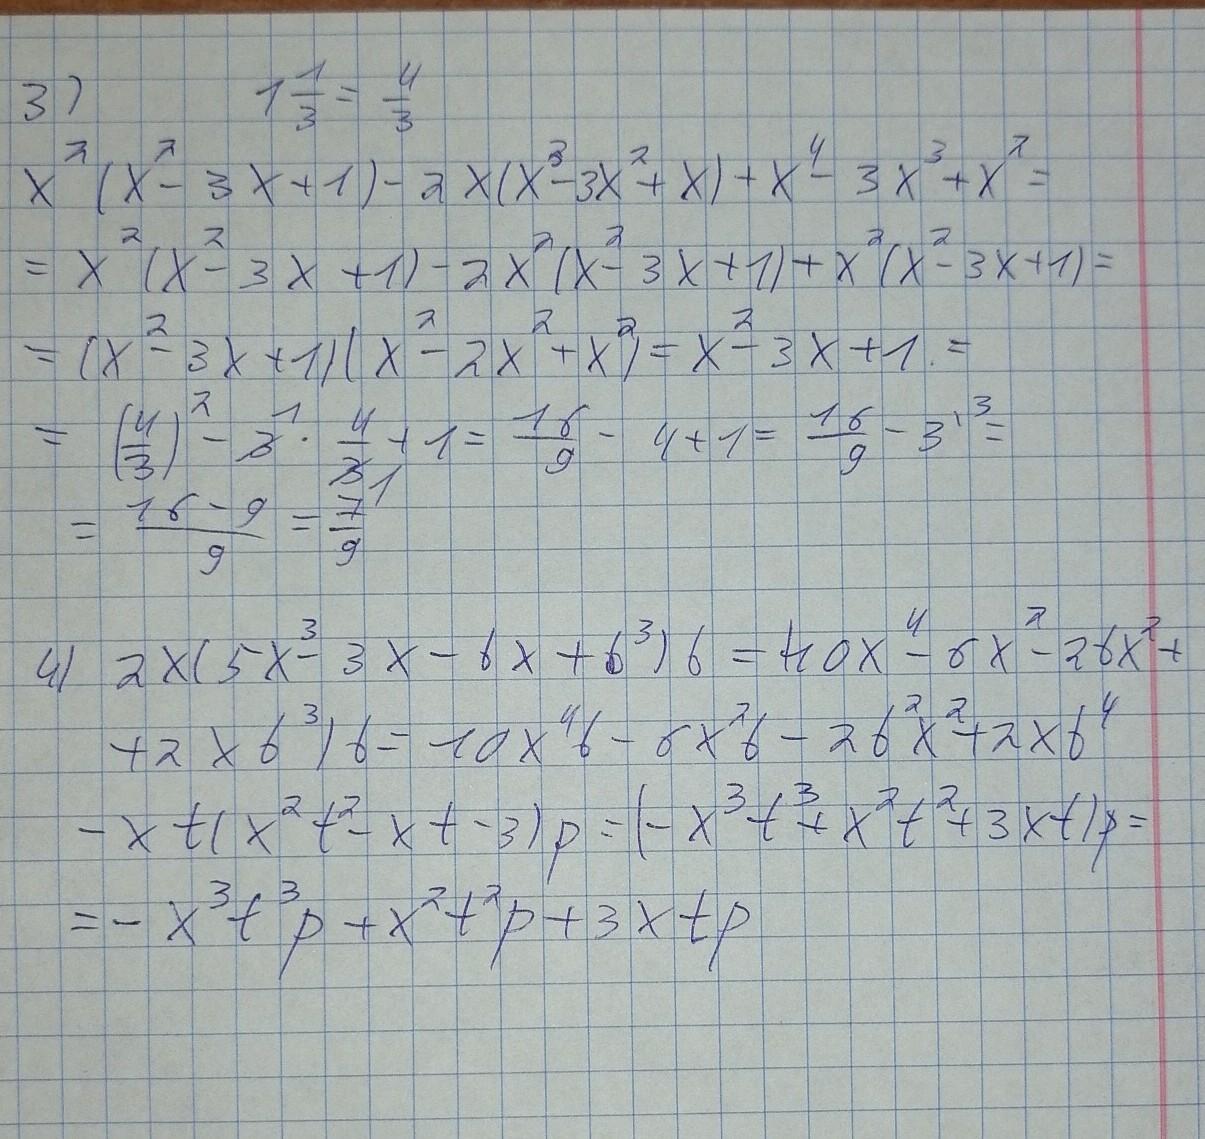 3) 1 1/3 = 4/3
x²(x² - 3x + 1) - 2x(x³ - 3x² + x) + x⁴ - 3x³ + x² =
= x²(x² - 3x + 1) - 2x²(x² - 3x + 1) + x²(x² - 3x + 1) =
= (x² - 3x + 1)(x² - 2x² + x²) = x² - 3x + 1. =
= (4/3)² - 3¹ · 4/3₁ + 1 = 16/9 - 4 + 1 = 16/9 - 3^{\3} =
= (16 - 9)/9 = 7/9
4) 2x(5x³ - 3x - bx + b³)b = (10x⁴ - 6x² - 2bx² +
+ 2xb³)b = 10x⁴b - 6x²b - 2b²x² + 2xb⁴
- xt(x²t² - xt - 3)p = (-x³t³ + x²t² + 3xt)p =
= - x³t³p + x²t²p + 3xtp